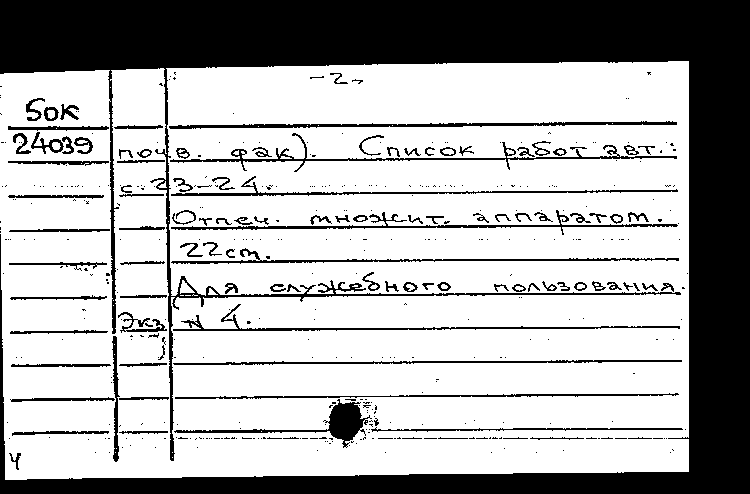 -2-
БОК
24039
почв. фак). Список работ авт.:
с. 23-24.
Отпеч. множит. аппаратом.
22 см.
Для служебного пользования.
Экз N 4.
ч